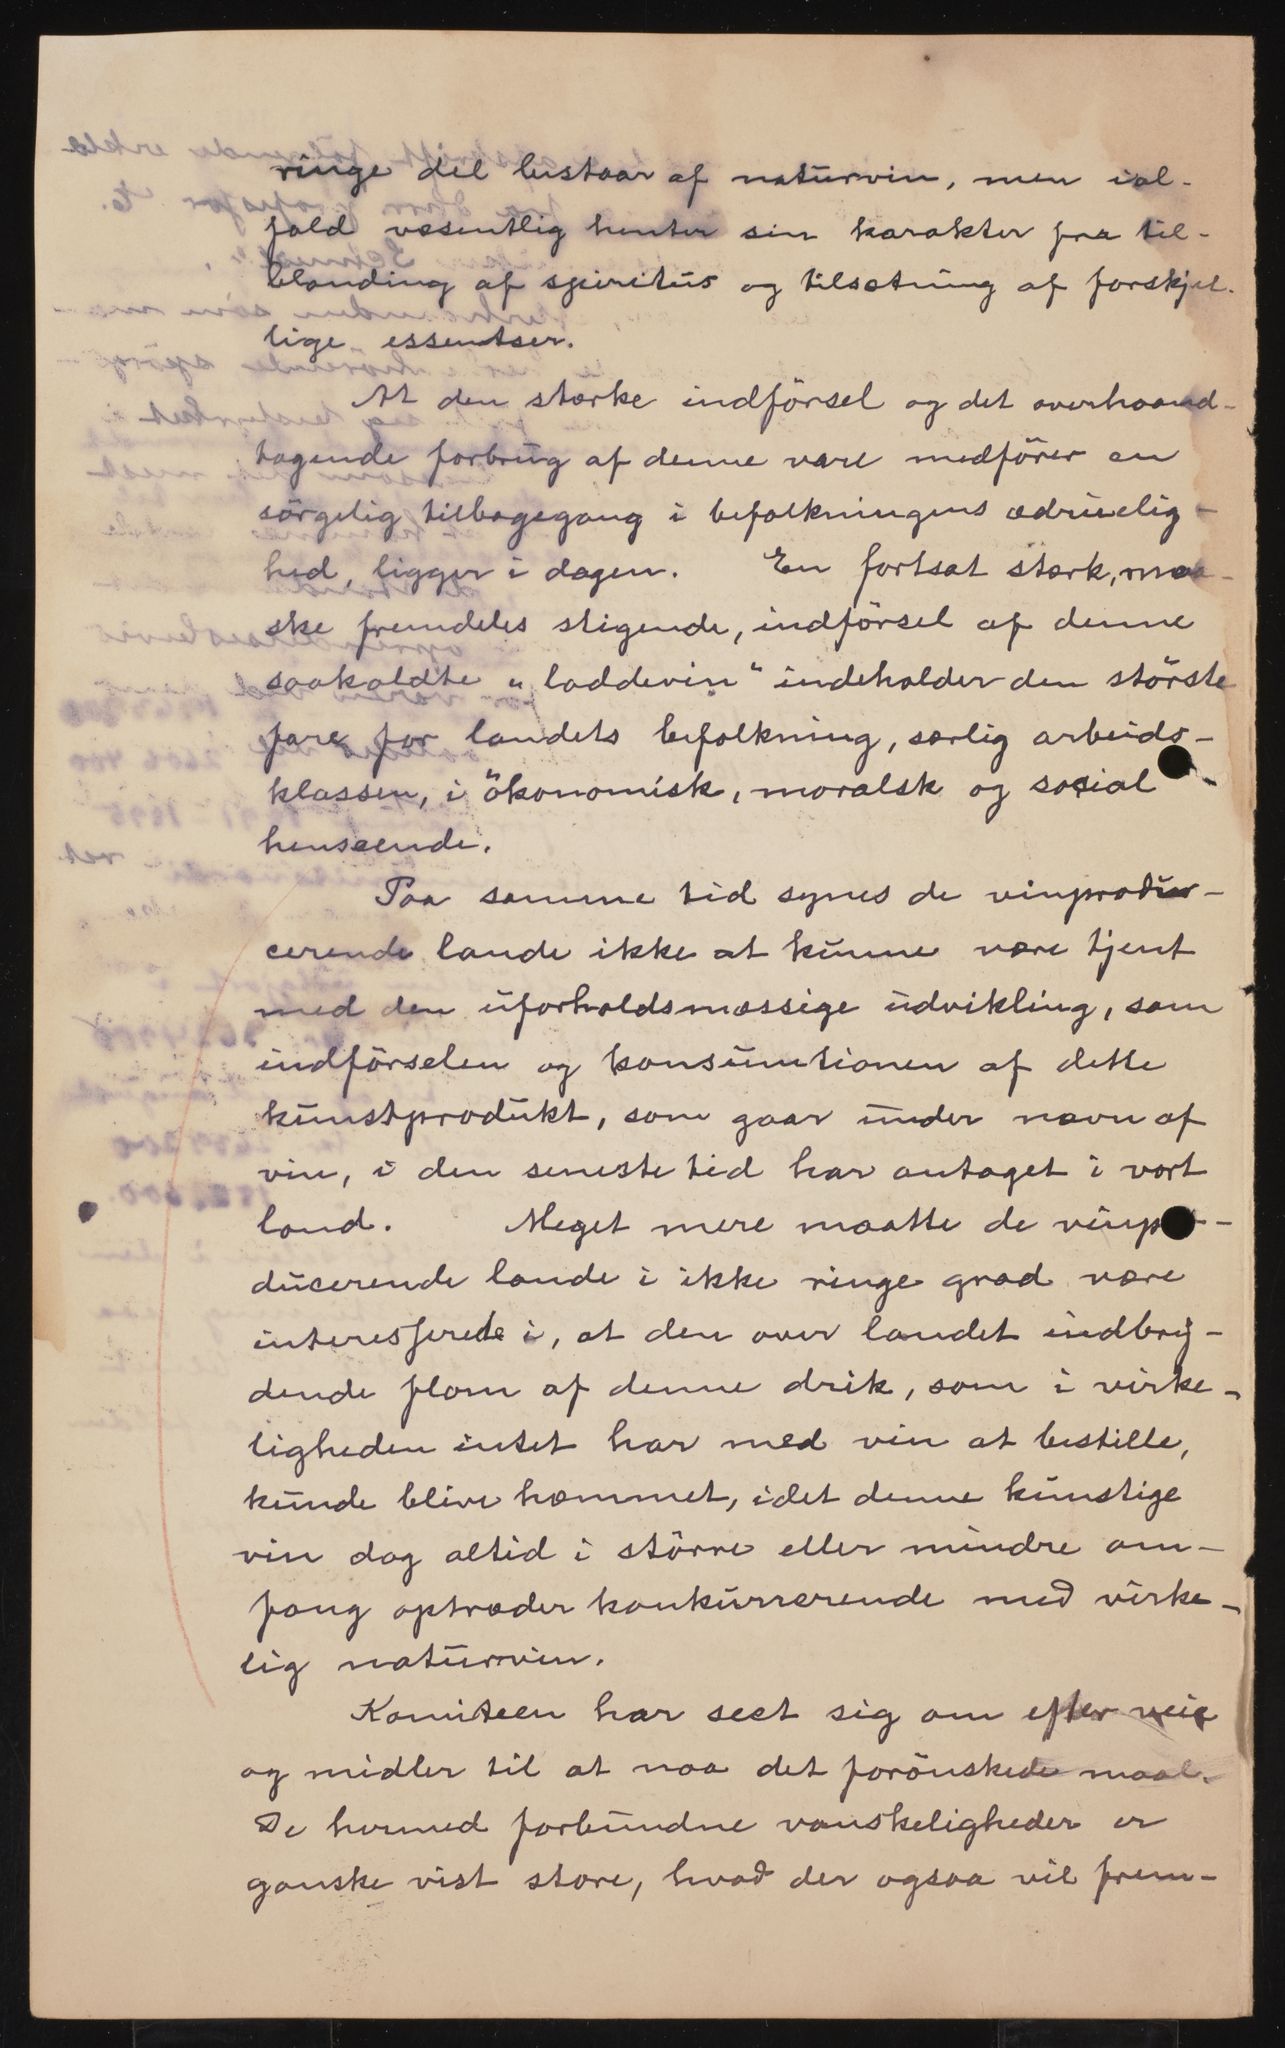 ringe del bestaar af naturvin, men ial-
fald væsentlig henter sin karakter fra til-
blanding af spiritus og tilsætning af forskjel-
lige essentser.
At den stærke indförsel og det overhaand-
tagende forbrug af denne vare medförer en
sörgelig tilbagegang i befolkningens ædruelig-
hed, ligger i dagen. En fortsat stærk, maa-
ske fremdeles stigende, indförsel af denne
saakaldte "laddevin" indeholder den störste
fare for landets befolkning, særlig arbeids-
klassen, i ökonomisk, moralsk og social
henseende.
Paa samme tid synes de vinprodu-
cerende lande ikke at kunne være tjent
med den uforholdsmæssige udvikling, som
indförselen og konsumtionen af dette
kunstprodukt, som gaar under navn af
vin, i den seneste tid har antaget i vort
land. Meget mere maatte de vinp-
ducerende lande i ikke ringe grad være
interesserede i, at den over landet indbry-
dende flom af denne drik, som i virke-
ligheden intet har med vin at bestille,
kunde blive hæmmet, idet denne kunstige
vin dog altid i större eller mindre om-
fang optræder konkurrerende med virke-
lig naturvin.
Komiteen har seet sig om efter veie
og midler til at naa det forönskede maal.
De hermed forbundne vanskeligheder er
ganske vist store, hvad der ogsaa vil frem-